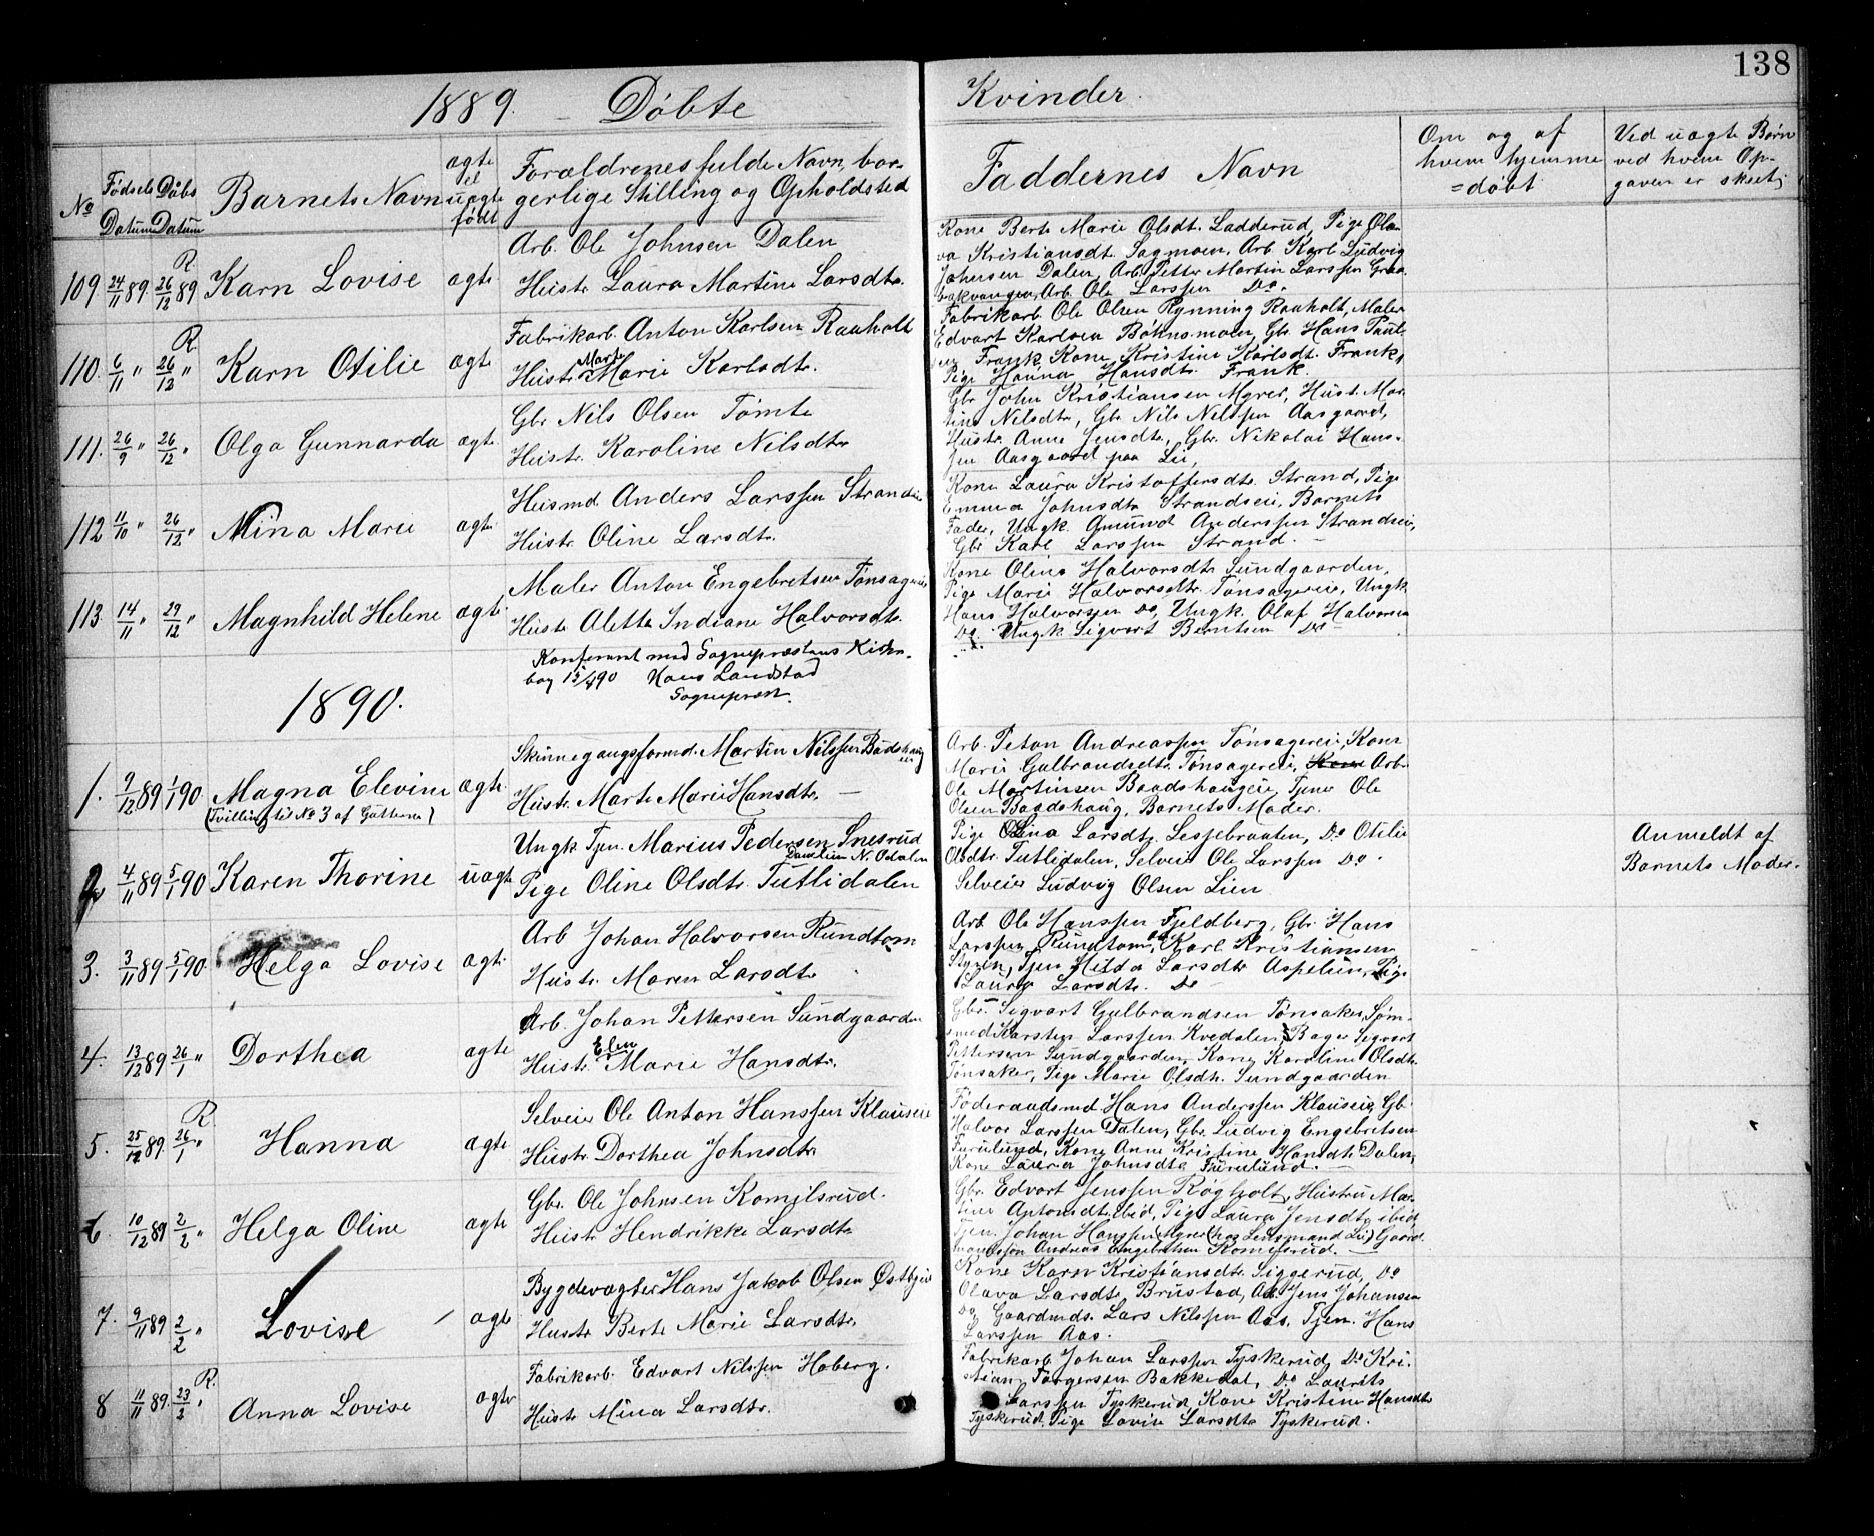 138
1889. Döbte Kvinder.
No
Fødsels Datum
Dåbs Datum
Barnets Navn
ægte el uægte født
Forældrenes fulde Navn, bor-
gerlige Stilling og Opholdsted
Faddernes Navn
Om og af
hvem hjemme
=døbt
Ved uægte Børn
ved hvem Op-
gaven er skeet
109 24/11 89. 26/12 89 R. Karn Lovise ægte
Arb. Ole Johnsen Dalen
Hustr. Laura Martine Larsdtr.
Kone Berte Marie Olsdt. Ladderud, Pige Ola-
va Kristiansdt. Sagmoen, Arb. Karl Ludvig
Johnsen Dalen, Arb. Petter Martin Larssen
Arb. Ole Larssen Do.
110. 6/11 " 26/12 " R. Karn Otilie ægte
Fabrikarb. Anton Karlsen Raaholt
Hustr. Marte Marie Karlsdtr.
Fabrikarb. Ole Olsen Rynning Raaholt, Maler
Edvart Karlsen Böhnsmoen, Gbr. Hans Paul-
sen Frank, Kone Kristine Karlsdt. Frank,
Pige Hanna Hansdtr. Frank.
111. 26/9 " 26/12 " Olga Gunnarda ægte
Gbr. Nils Olsen Tömte
Hustr. Karoline Nilsdtr.
Gbr. John Kristiansen Myrer, Hust. Mar-
tine Nilsdtr, Gbr. Nils Nilssen Aasgaard,
Hustr. Anne Jensdtr, Gbr. Nikolai Hans-
sen Aasgaard paa Lii,
112 11/10 " 26/12 " Mina Marie ægte
Husmd Anders Larssen Strandeie
Hustr. Oline Larsdtr.
Kone Laura Kristoffersdtr. Strand, Pige
Emma Johnsdtr Strandeie, Barnets
Fader, Ungk. Amund Anderssen Strandeie,
Gbr Karl Larssen Strand.
113. 14/11 " 29/12 " Magnhild Helene ægte
Maler Anton Engebretsen Tönsagereie
Hustr Alette Indiane Halvorsdtr.
Kone Oline Halvorsdtr. Sundgaarden,
Pige Marie Halvorsdtr. Tönsagereie, Ungk.
Hans Halvorssen Do, Ungk. Olaf Halvorsen
Do. Ungk Sigvart Berntsen Do
Konfereret med Sognepræstens Kirke-
bog 15/4 90 Hans Landstad
Sognepræst.
1890.
1. 9/12 89 1/1 90 Magna Elevine ægte
(Tvilling til No 3 af Guttene)
Skinnegangsformd. Martin Nilssen Baadshaug
eie
Hustr. Marte Marie Hansdtr.
Arb. Peton Andreassen Tönsagereie, Kone
Marie Gulbrandsdtr. Tönsagereie, Kone Arb.
Ole Martinsen Baadshaugeie, Tjener Ole
Olsen Baadshaug, Barnets Moder.
2. 4/11 89 5/1 90 Karen Thorine uægte
Ungk. Tjen. Marius Pedersen Snesrud
N. Odalen
Pige Oline Olsdtr. Tutlidalen
Pige Olina Larsdtr. Lessebraaten, Do Otilie
Olsdtr. Tutlidalen, Selveier Ole Larssen Do.
Selveier Ludvig Olsen Lien
Anmeldt af
Barnets Moder.
3. 3/11 89 5/1 90. Helga Lovise ægte
Arb Johan Halvorsen Rundtom
Hustr. Maren Larsdtr
Arb Ole Hanssen Fjeldberg, Gbr. Hans
Larssen Rundtom, Karl Kristiansen
Styren, Tjen Hilda Larsdtr Aspelien, Pige
Laura Larsdtr. Do
4. 13/12 89 26/1 " Dorthea ægte
Arb. Johan Pettersen Sundgaarden
Hustr. Elen Marie Hansdtr.
Gbr. Sigvart Gulbrandsen Tönsaker, Tjøm-
Karsten Larssen Kvedalen, Bager Sigvart
Pettersen Sundgaarden, Kone Karoline Olsdtr.
Tönsaker, Pige Marie Olsdtr. Sundgaarden
5. 25/12 89. 26/1 " R. Hanna ægte
Selveier Ole Anton Hanssen Klauseie
Hustr. Dorthea Johnsdtr
Föderaadsmd Hans Anderssen Klauseie, Gb.
Halvor Larssen Dalen, Gbr. Ludvig Engebretsen
Furulund, Kone Anne Kristine Hansdtr. Dalen,
Kone Laura Johnsdtr Furulund.
6 10/12 89 2/2 " Helga Oline ægte
Gbr. Ole Johnsen Komilsrud.
Hustr Hendrikke Larsdtr
Gbr. Edvart Jenssen Rögholt, Hustru Mar-
tine Antonsdtr. ibid, Pige Laura Jensdtr ibid,
Tjen. Johan Hanssen Myrer (hos Lensmand Lii) Gaard-
mandssøn Andreas Engebretsen Komilsrud.
7. 9/11 89 2/2 " Lovise ægte
Bygdevægter Hans Jakob Olsen Østbyeie
Hustr Berte Marie Larsdtr.
Kone Karn Kristiansdtr. Siggerud, Do
Olava Larsdtr Brustad, Arb. Jens Johansen
Do, Gaardmds. Lars Nilssen Aas, Tjen. Hans
Larssen Aas.
8 11/11 89. 23/2 " R. Anna Lovise ægte
Fabrikarb. Edvart Nilssen Hoberg.
Hustr Mina Larsdtr.
Fabrikarb. Johan Larssen Tyskerud, Do Kri-
stian Torgersen Bakkedal, Do Laurits
Larssen Tyskerud, Kone Kristine Hansdtr
Tyskerud, Pige Lovise Larsdtr Tyskerud.